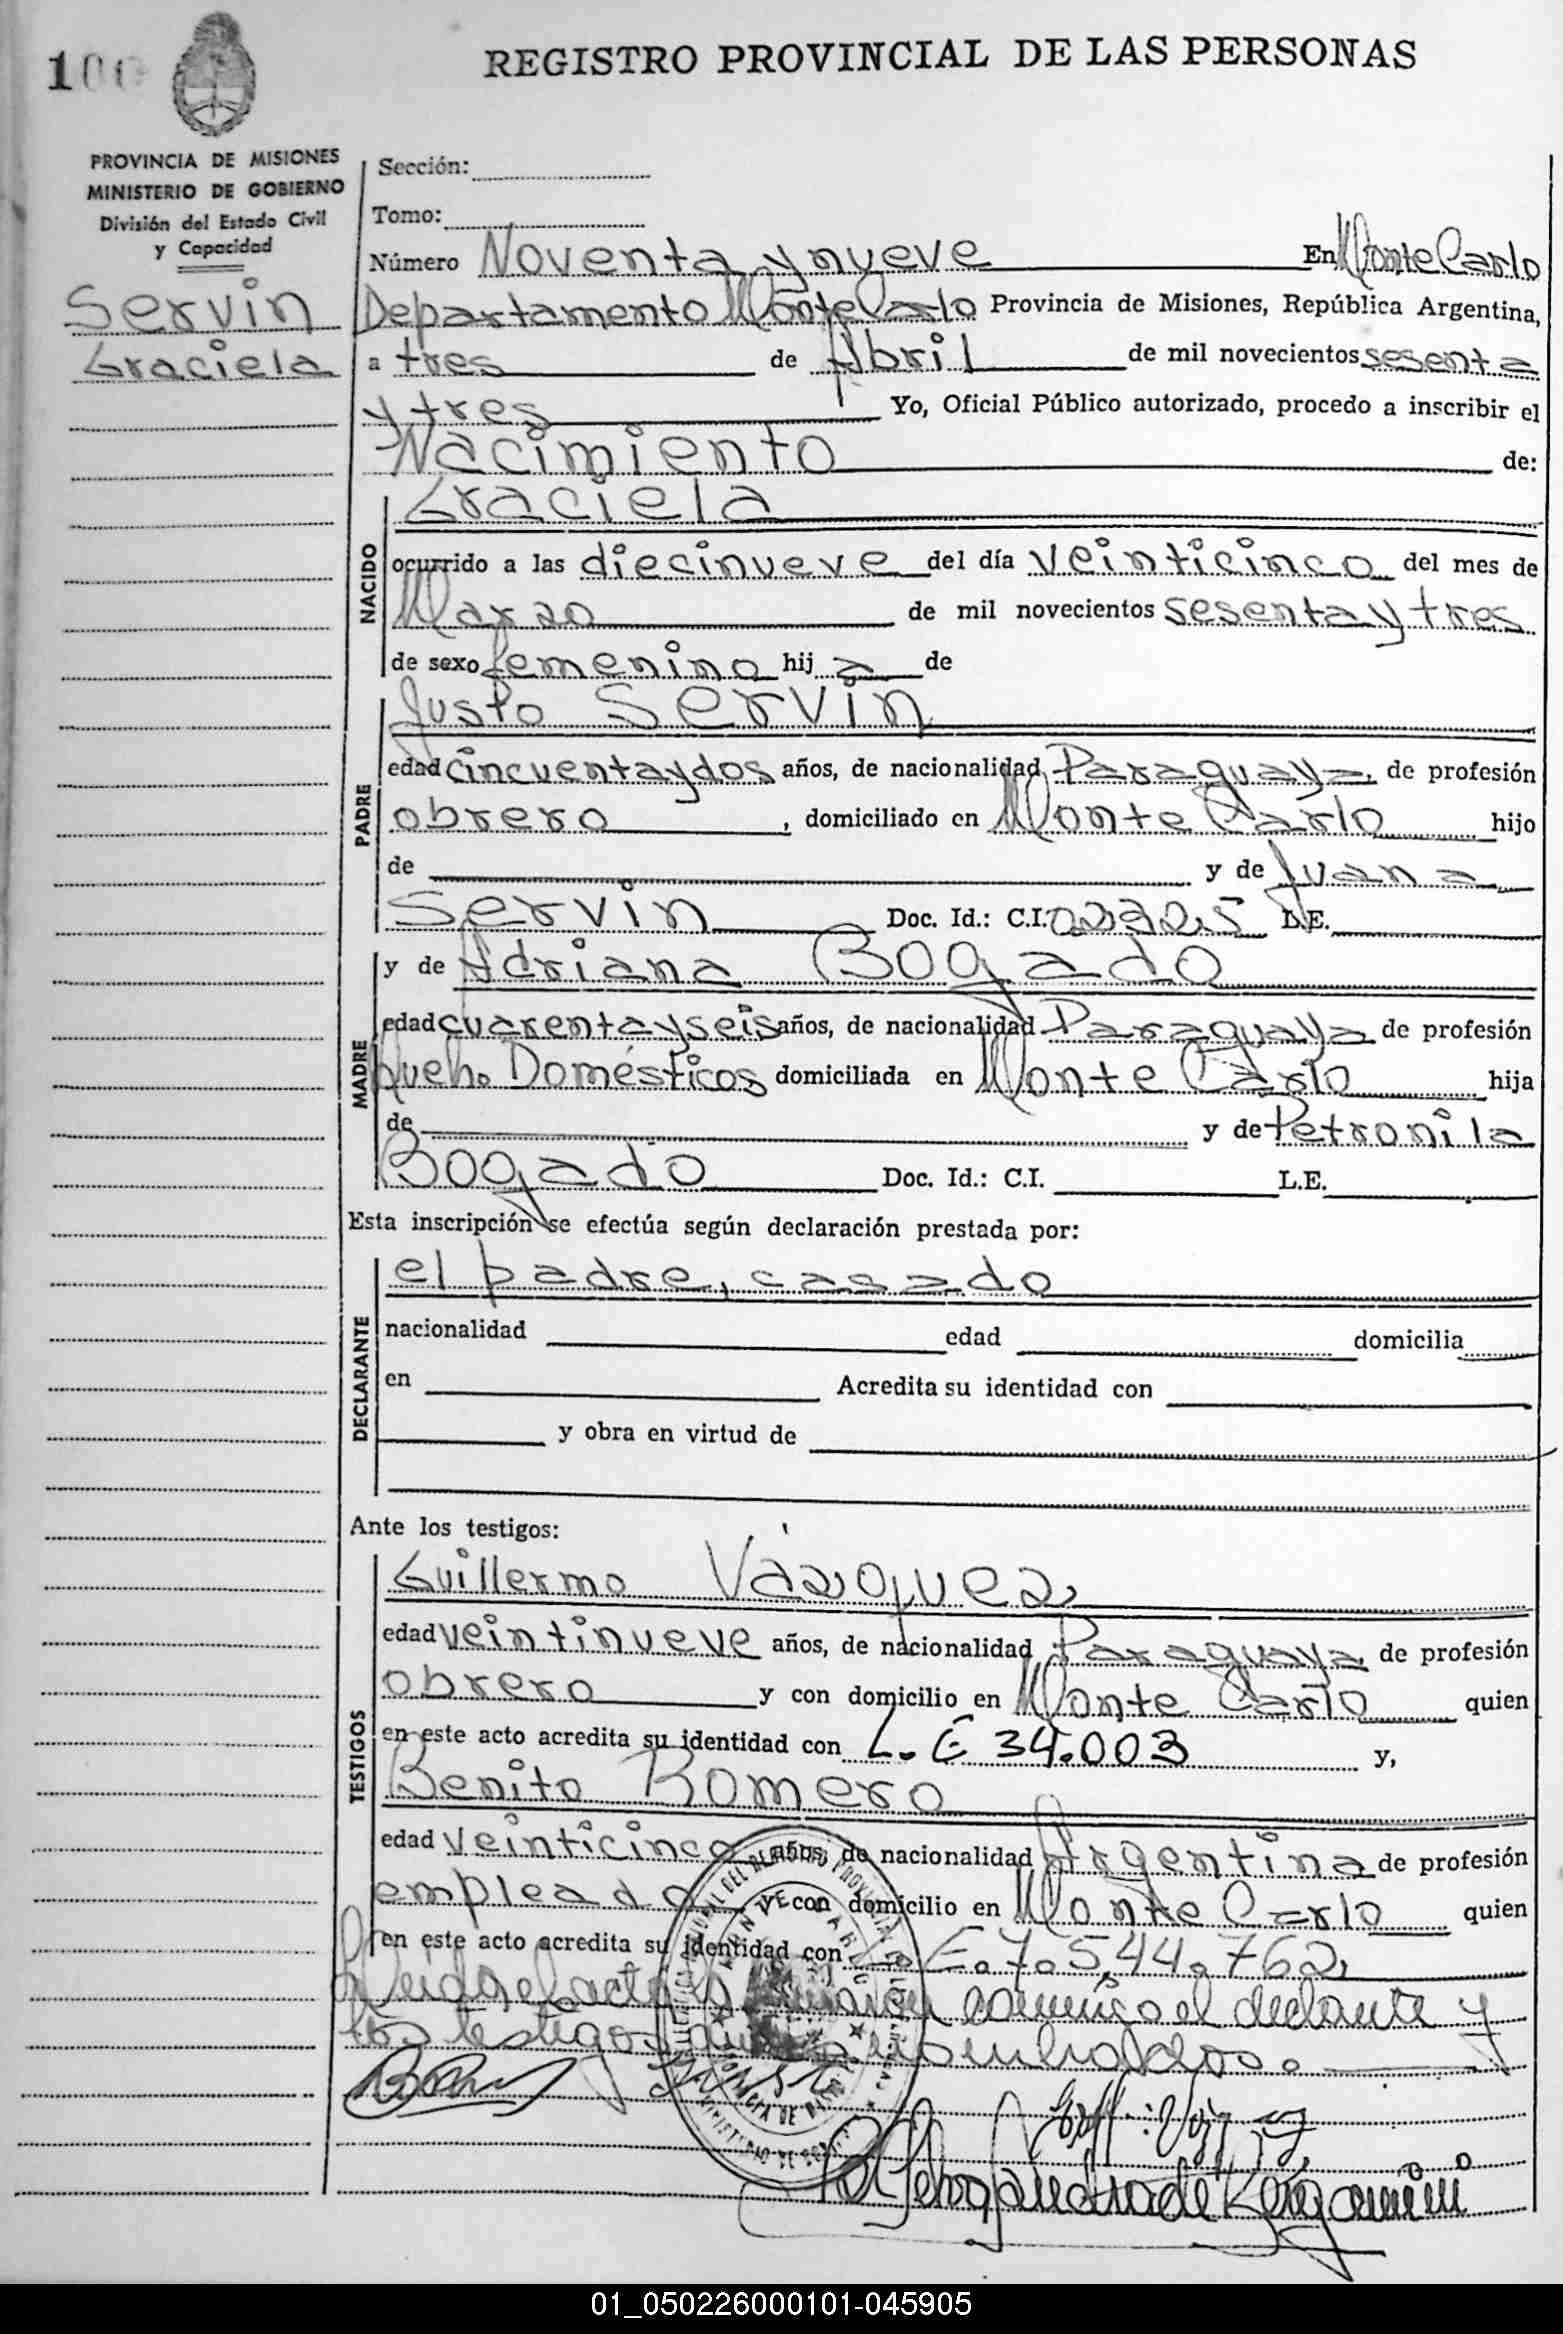 100
REGISTRO PROVINCIAL DE LAS PERSONAS
PROVINCIA DE MISIONES
MINISTERIO DE GOBIERNO
División del Estado Civil
y Capacidad
Servin
Graciela
Sección:
Tomo:
Número Noventa y nueve En Monte Carlo
Departamento Monte Carlo Provincia de Misiones, República Argentina,
a tres de Abril de mil novecientos sesenta
y tres Yo, Oficial Público autorizado, procedo a inscribir el
Nacimiento de:
NACIDO
Graciela
ocurrido a las diecinueve del día veinticinco del mes de
Marzo de mil novecientos sesenta y tres
de sexo femenino hij a de
PADRE
Justo Servin
edad cincuenta y dos años, de nacionalidad Paraguaya de profesión
obrero, domiciliado en Monte Carlo hijo
de y de Juana
Servin Doc. Id.: C.I. L.E.
MADRE
y de Adriana Bogado
edad cuarenta y seis años, de nacionalidad Paraguaya de profesión
Queh. Domésticos domiciliada en Monte Carlo hija
de y de Petronila
Bogado Doc. Id.: C.I. L.E.
Esta inscripción se efectúa según declaración prestada por:
DECLARANTE
el padre, casado
nacionalidad edad domicilia
en Acredita su identidad con
y obra en virtud de
Ante los testigos:
TESTIGOS
Guillermo Vázquez
edad veintinueve años, de nacionalidad Paraguaya de profesión
obrero y con domicilio en Monte Carlo quien
en este acto acredita su identidad con L. E 34.003 y,
Benito Romero
edad veinticinco años, de nacionalidad Argentina de profesión
empleado y con domicilio en Monte Carlo quien
en este acto acredita su identidad con L. E. 7.544.762,
Leida el acta conmigo el declante y
los testigos
01_050226000101-045905